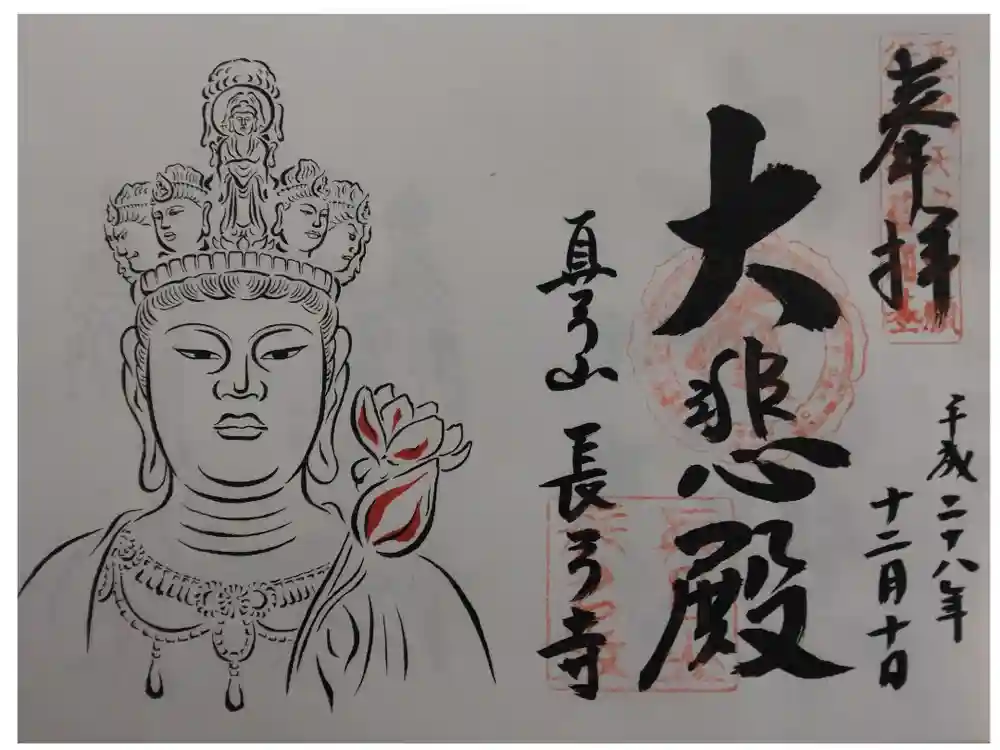 奉拝
平成二十八年
十二月十日
大悲殿
真弓山 長弓寺